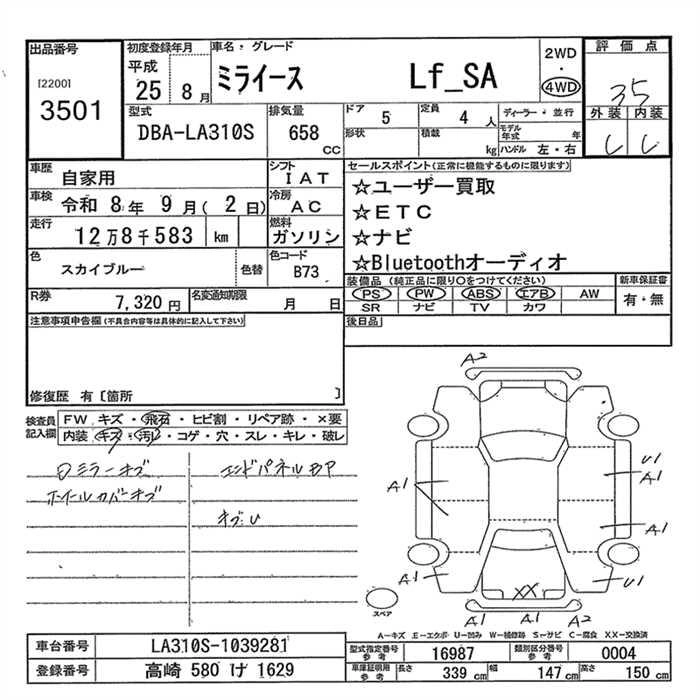 出品番号
[2200]
3501
初度登録年月
平成
25 8月
車名・グレード
ミライース Lf_SA
2WD
・
4WD
評価点
3.5
外装 内装
型式
DBA-LA310S
排気量
658
CC
ドア
5
形状
定員
4人
積載
kg
ディーラー・並行
モデル年式 年
ハンドル 左・右
車歴
自家用
シフト
IAT
車検
令和 8年 9月( 2日)
冷房
AC
走行
12万8千583 km
燃料
ガソリン
色
スカイブルー
色替
色コード
B73
R券
7,320円
名変通知期限
月 日
セールスポイント(正常に機能するものに限ります)
☆ユーザー買取
☆ETC
☆ナビ
☆Bluetoothオーディオ
装備品(純正品に限り○をつけてください)
PS PW ABS エアB AW
SR ナビ TV カワ
新車保証書
有・無
後日品
注意事項申告欄(不具合内容等は具体的に記入して下さい)
修復歴 有〔箇所 〕
検査員記入欄
FW キズ・飛石・ヒビ割・リペア跡・×要
内装 キズ・汚レ・コゲ・穴・スレ・キレ・破レ
ミラーキズ
ホイールカバーキズ
エンドパネル
キズ・U
A2
A1
U1
A1
A1
A1
XX
U1
A1
A1
スペア
A―キズ E―エクボ U―凹み W―補修跡 S―サビ C―腐食 XX―交換済
車台番号 LA310S-1039281
登録番号 高崎 580 げ 1629
型式指定番号 参考 16987
類別区分番号 参考 0004
車庫証明用 参考 長さ 339 cm 幅 147 cm 高さ 150 cm